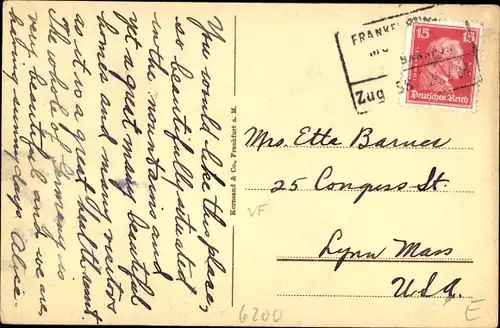 You would like this place,
so beautifully situated
in the mountains and
yet a great many beautiful
homes and many visitors
as it is a great health resort.
The whole of Germany is
very beautiful and we are
having sunny days Alice.
Kornsand & Co., Frankfurt a. M.
Zug
15 15
Deutsches Reich
Mrs. Etta Barnes
25 Congress St.
Lynn Mass
U.S.A.
VF
6200
E